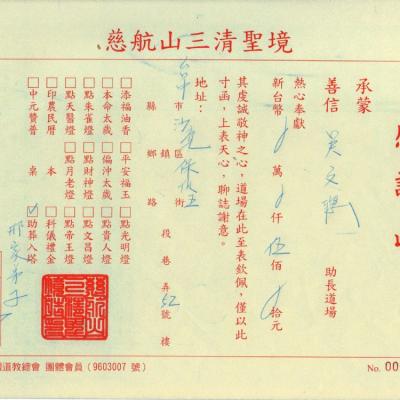 慈航山三清聖境
感謝狀
承蒙
善信 吳文 助長道場
熱心奉獻
新台幣 萬 仟伍佰 拾元
其虔誠敬神之心,道場在此至表欽佩,僅以此
寸函,上表天心,聊誌謝意。
地址:
縣市 鄉鎮區 路街 段 巷 弄 52 號 樓
□添福油香 □平安福玉 □點光明燈
□本命太歲 □偏沖太歲 □點貴人燈
□點朱雀燈 □點財神燈 □點文昌燈
□點天醫燈 □點月老燈 □點帝王燈
□印農民曆 本 □科儀禮金
□中元贊普 桌 ☑助葬入塔
道教總會 團體會員(9603007 號)
No. 00